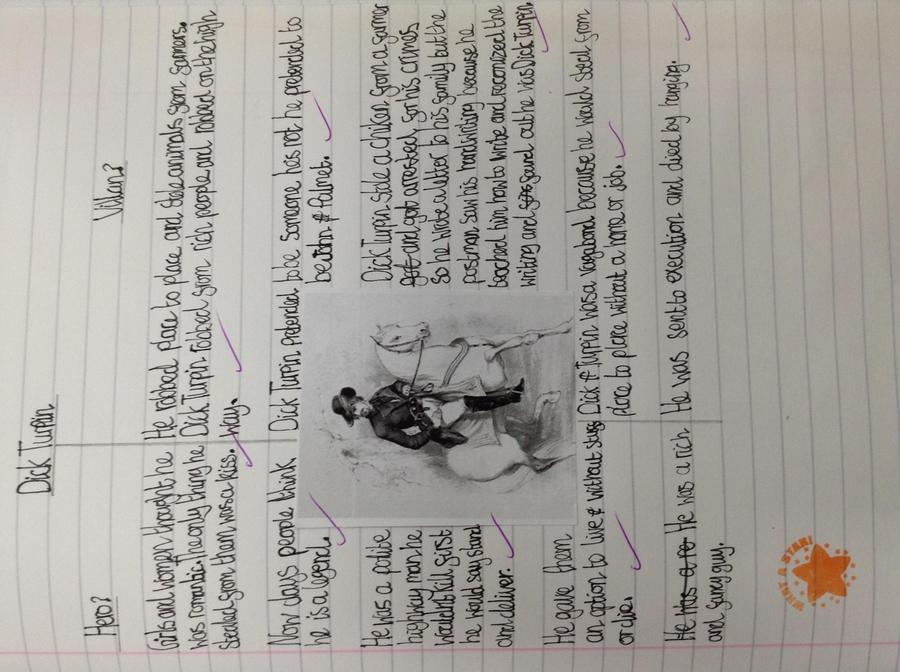 Dick Turpin
Hero?
Girls and women thought he
was romantic. The only thing he
stealed from them was a kiss.
Now days people think
he is a legend.
He was a polite
highway man he
wouldn't kill first
he would say stand
and deliver.
He gave them
an option to live & without stuff
or die.
He was a re He was a rich
and fancy guy.
Villan?
He robbed place to place and stole animals from farmers.
Dick Turpin robbed from rich people and robbed on the high
way.
Dick Turpin pretended to be someone hes not he pretended to
be John Palmer.
Dick Turpin stole a chiken from a farmer
got and got arrested, for his crimes
so he wrote a letter to his family but the
postman saw his handwriting because he
teached him how to write and reconized the
writing and found out he was Dick Turpin.
Dick Turpin was a vagabond because he would steal from
place to place without a home or job.
He was sent to execution and died by hanging.
WHAT A STAR!